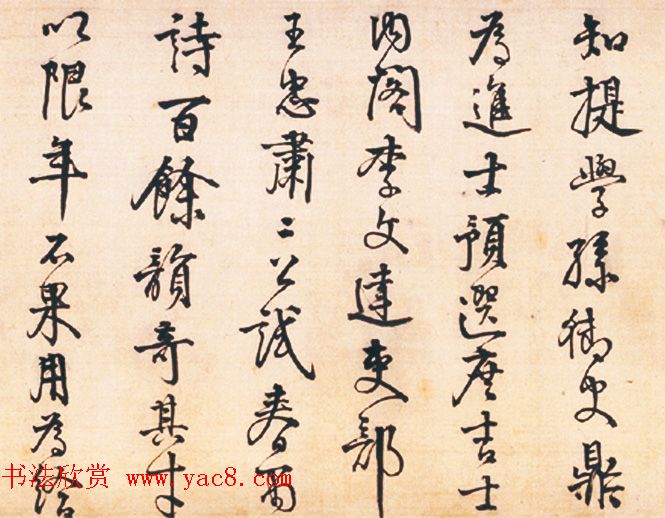 知提學孫御史鼎
為進士預選庶吉士
內閣李文達吏部
王忠肅二公試春雨
詩百餘韻奇其才
以限年不果用為給
书法欣赏 www.yac8.com